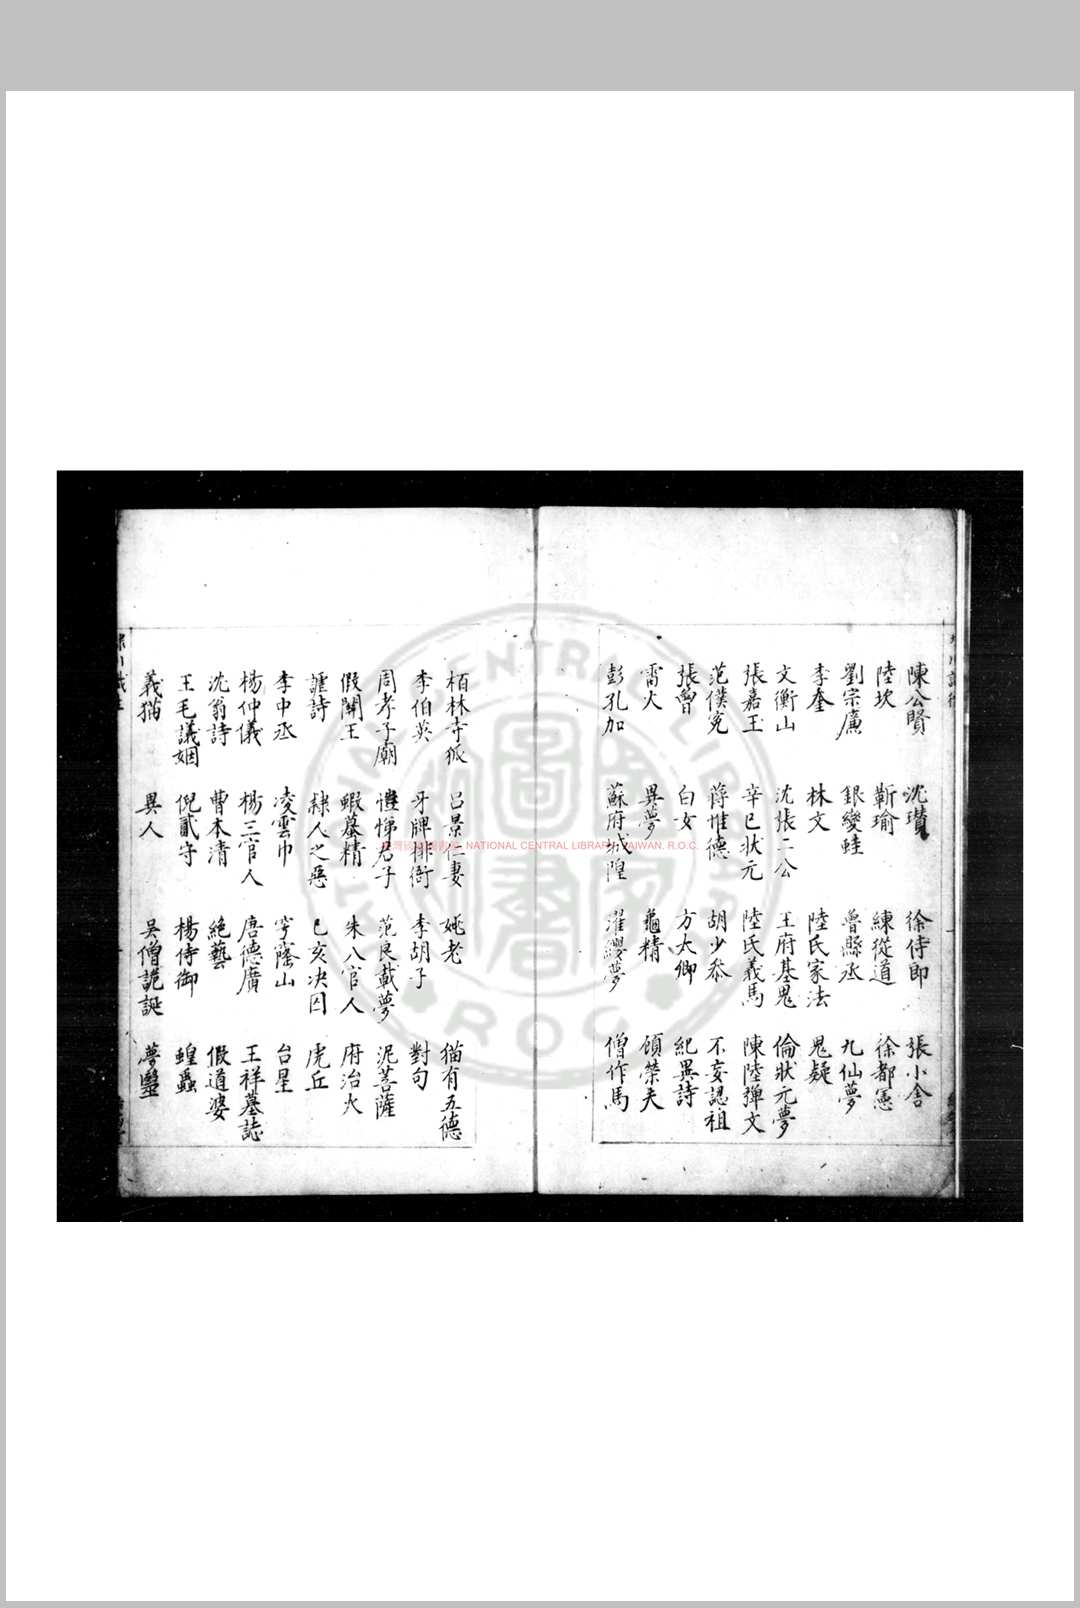 陳公賢 沈瓚 徐侍郎 張小舍
陸坎 靳瑜 練從道 徐都憲
劉宗廉 銀變蛙 魯縣丞 九仙夢
李奎 林文 陸氏家法 鬼疑
文衡山 沈張二公 王府基鬼 倫狀元夢
張嘉玉 辛巳狀元 陸氏義馬 陳陸彈文
范僕冤 蔣惟德 胡少叅 不妄認祖
張曾 白女 方大卿 紀異詩
雷火 異夢 龜精 頋榮夫
彭孔加 蘇府城隍 濯纓夢 僧作馬
栢林寺狐 呂景仁妻 姚老 猫有五德
李伯英 牙牌排衙 李胡子 對句
周孝子廟 愷悌君子 范良載夢 泥菩薩
假閘王 蝦蟇精 朱八官人 府治火
謔詩 隸人之惡 已亥决囚 虎丘
李中丞 凌雲巾 穹窿山 台星
楊仲儀 楊三官人 唐德廣 王祥墓誌
沈翁詩 曹本清 絕藝 假道婆
王毛議姻 倪貳守 楊侍御 蝗蟲
義猫 異人 吳僧詭誕 夢鑒
NATIONAL CENTRAL LIBRARY, TAIWAN. R.O.C.